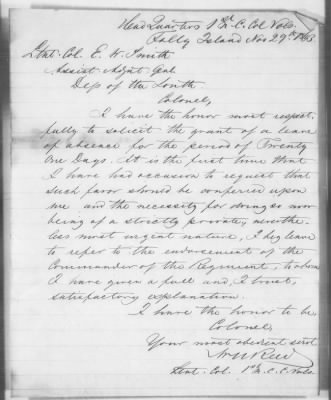 Head Quarters 1st N.C. Col Vols.
Folly Island Nov 29th 1863
Lieut. Col. E. W. Smith
Assist Adjut Genl
Dept of the South.
Colonel,
I have the honor most respect-
fully to solicit the grant of a leave
of absence for the period of Twenty
One Days. It is the first time that
I have had occasion to request that
such favor should be conferred upon
me and the necessity for doing so now
being of a strictly private, neverthe-
less most urgent nature, I beg leave
to refer to the endorsement of the
Commander of the Regiment, to whom
I have given a full and, I trust,
satisfactory explanation.
I have the honor to be,
Colonel,
Your most obedient servt
Wm N Reed
Lieut. Col. 1st N.C.C. Vols.